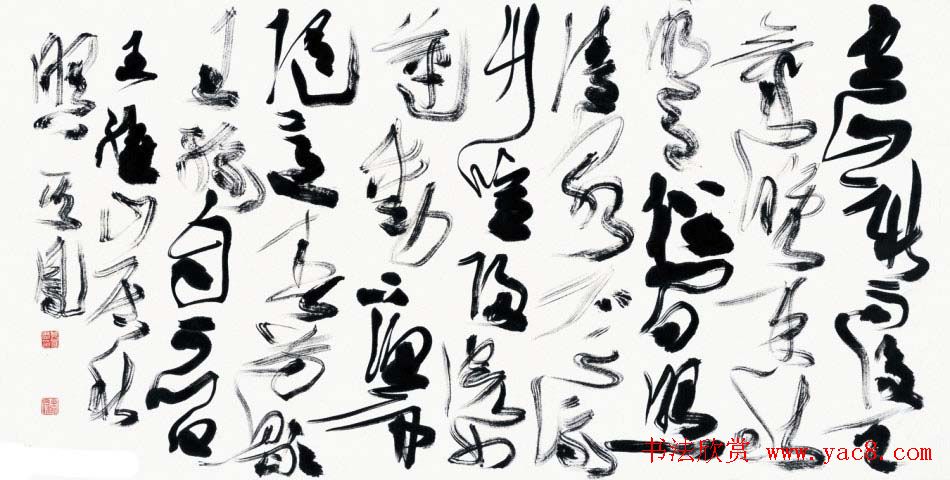 空山新雨後天
氣晚来秋
明月松間照
清泉石上流
竹喧歸浣女
蓮動下漁舟
随意春芳歇
王孫自可留
王維山居秋
暝
书法欣赏 www.yac8.com